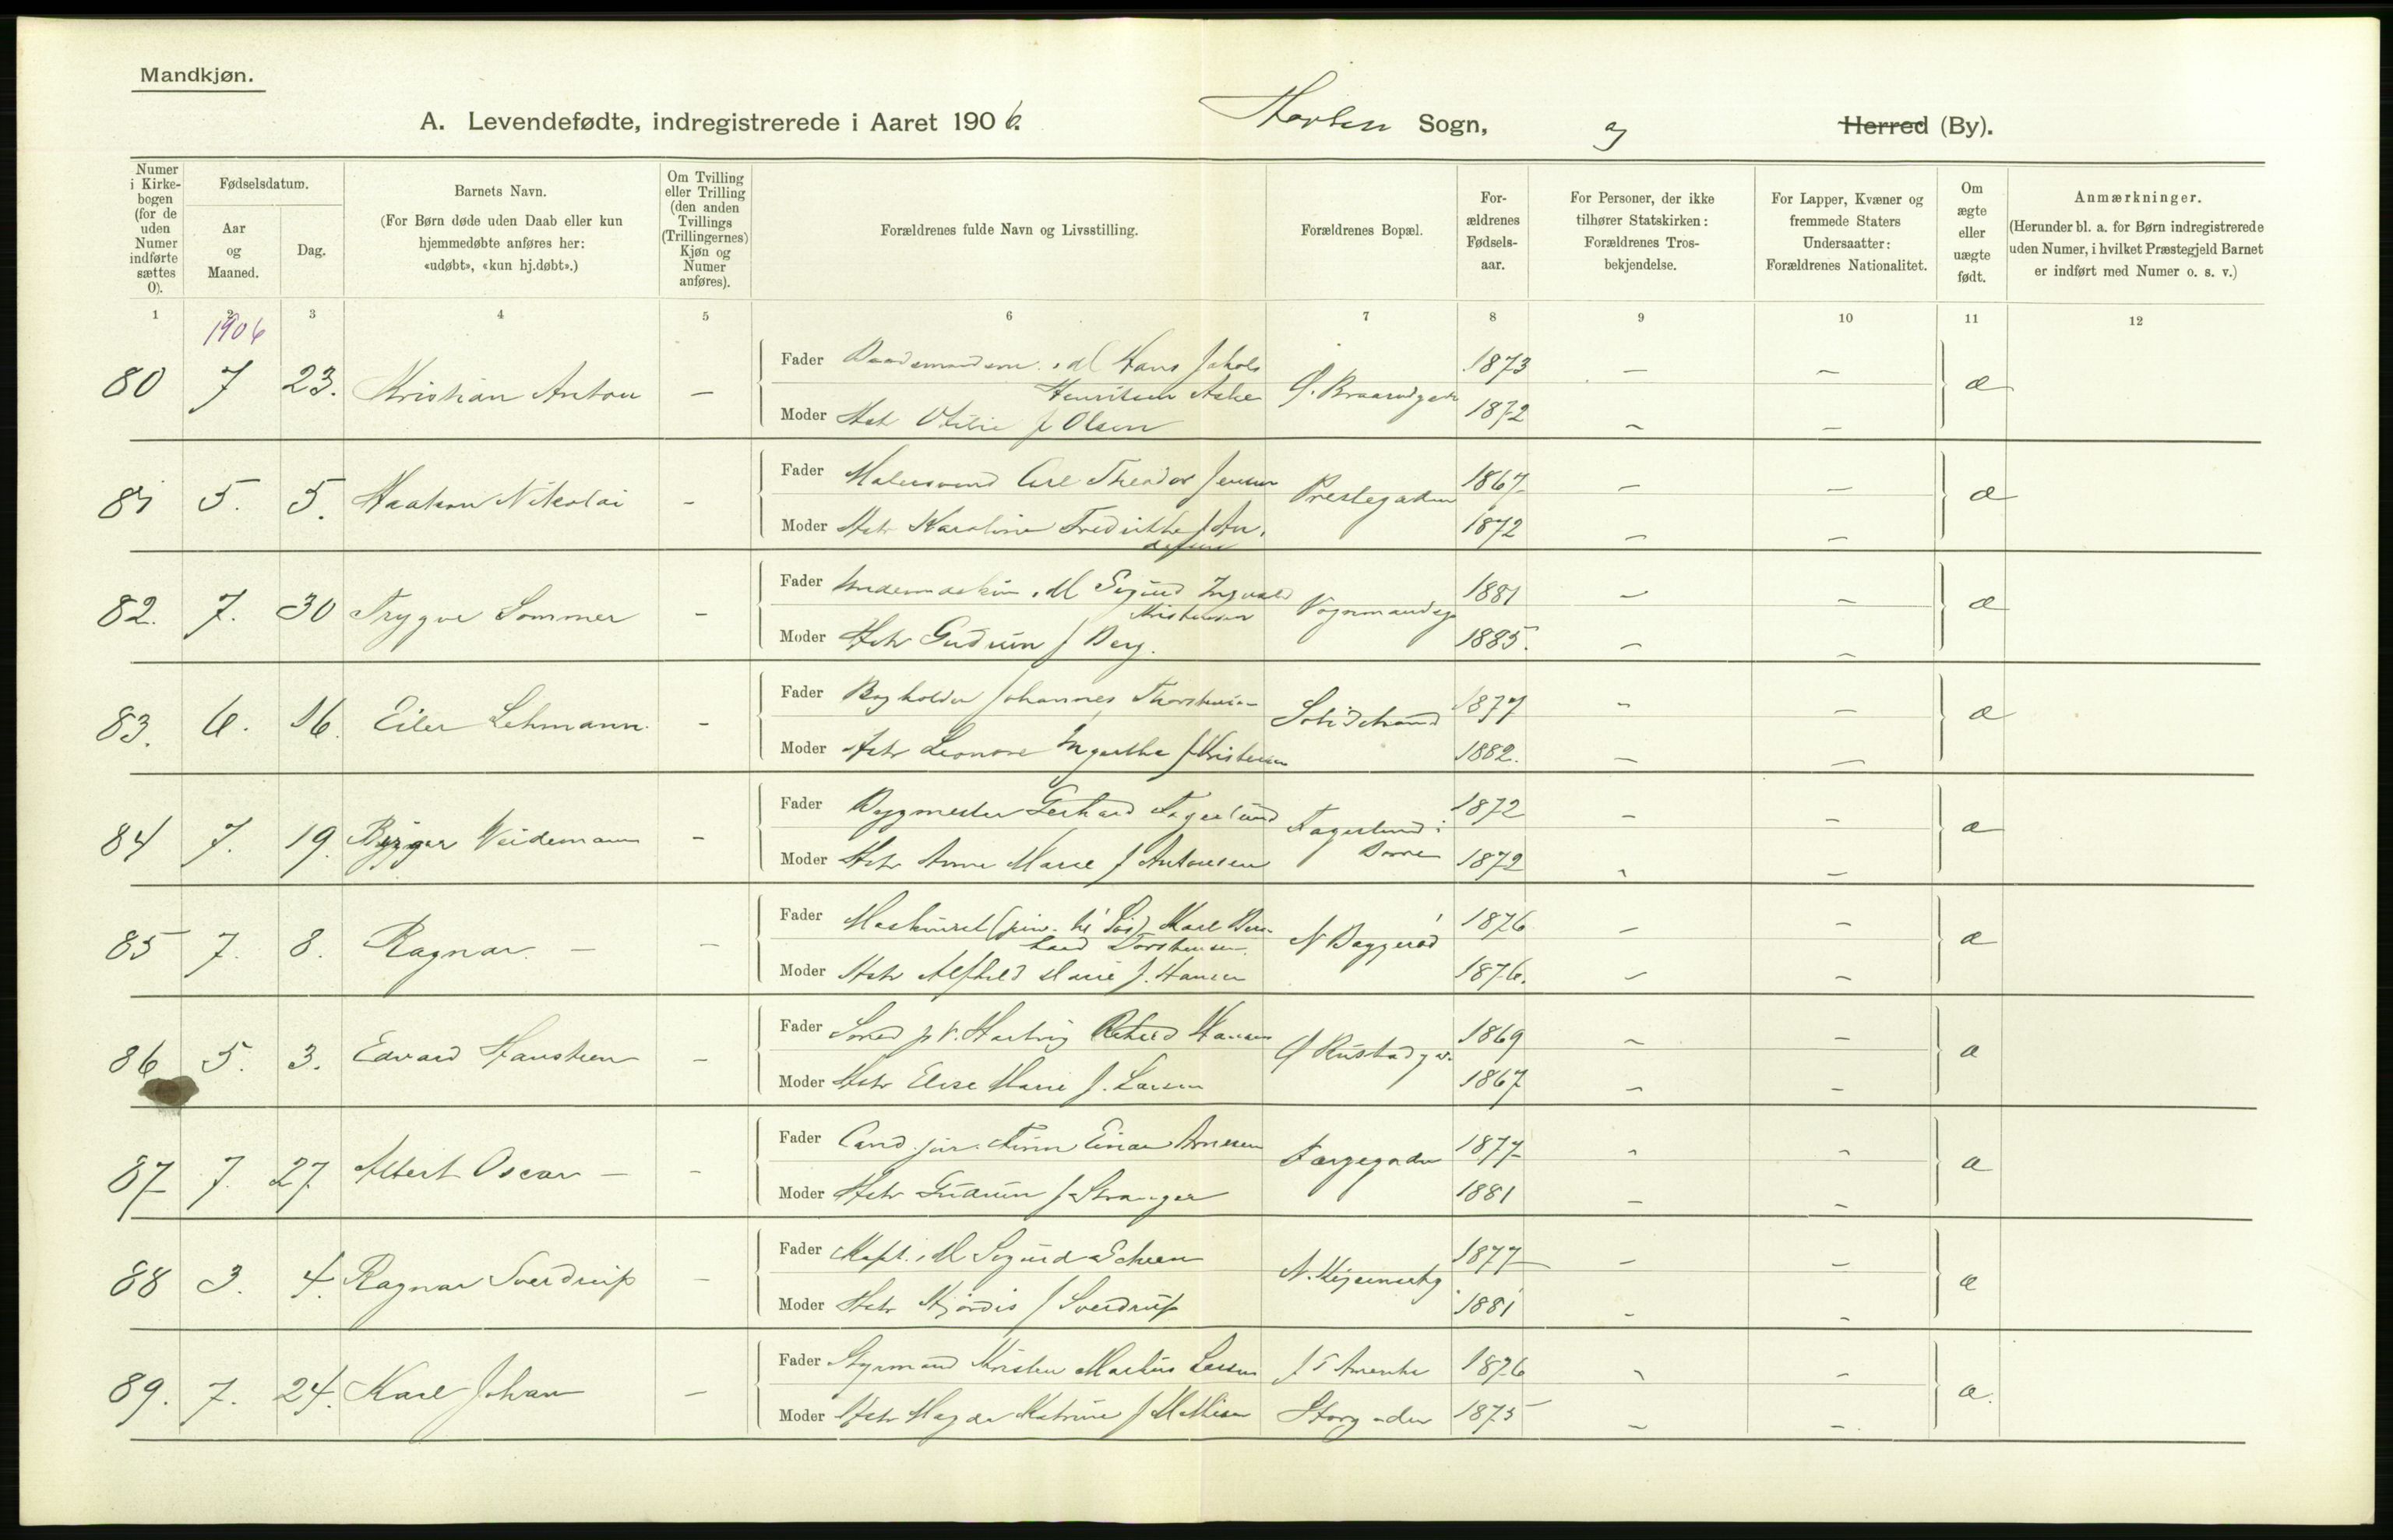 Mandkjøn.
A. Levendefødte, indregistrerede i Aaret 1906. Horten Sogn, og Herred (By).
Numer i Kirkebogen (for de uden Numer indførte sættes 0).
Fødselsdatum.
Aar og Maaned.
Dag.
Barnets Navn.
(For Børn døde uden Daab eller kun hjemmedøbte anføres her: «udøbt», «kun hj.døbt».)
Om Tvilling eller Trilling (den anden Tvillings (Trillingernes) Kjøn og Numer anføres).
Forældrenes fulde Navn og Livsstilling.
Forældrenes Bopæl.
For-ældrenes Fødsels-aar.
For Personer, der ikke tilhører Statskirken: Forældrenes Tros-bekjendelse.
For Lapper, Kvæner og fremmede Staters Undersaatter: Forældrenes Nationalitet.
Om ægte eller uægte født.
Anmærkninger.
(Herunder bl. a. for Børn indregistrerede uden Numer, i hvilket Præstegjeld Barnet er indført med Numer o. s. v.)
1 2 3 4 5 6 7 8 9 10 11 12
1906
80 7 23. Kristian Anton – Fader Hans Jakob 1873 – – æ
Moder Hstr Otilie f Olsen 1872 – –
81 5. 5. Haakon Nikolai – Fader Malersvend Carl Theodor Jensen Prestegaden 1867 – – æ
Moder Hstr Karoline Fredrikke f An-dersen 1872 – –
82. 7. 30 Trygve Sommer – Fader M Sigurd Ingvald Kristensen Vognmandsg 1881 – – æ
Moder Hstr Gudrun f Berg. 1885. – –
83. 6. 16. Eiler Lehmann. – Fader Bogholder Johannes Thorstensen 1877 – – æ
Moder Hstr Leonore f Kristensen 1882. – –
84 7. 19. Birger Weidemann – Fader Bygmester Gerhard Fagerlund Fagerlund i Borre 1872 – – æ
Moder Hstr Anna Marie f Antonsen 1872 – –
85 7. 8. Ragnar. – – Fader Karl Torstensen. N Baggerød 1876 – – æ
Moder Hstr Alfhild Marie f. Hansen 1876. – –
86 5. 3. Edvard Hansteen – Fader Hartvig Hansen Ø Rustadg 1869 – – æ
Moder Hstr Elise Marie f. Larsen 1867 – –
87 7. 27 Albert Oscar – – Fader Cand. jur. Finn Einar Arnesen Færgegaden 1877 – – æ
Moder Hstr Gudrun f Stranger 1881 – –
88 3. 4. Ragnar Sverdrup – Fader Kapt. i M Sigurd Scheen 1877 – – æ
Moder Hstr Hjørdis f Sverdrup 1881 – –
89. 7. 24. Karl Johan – Fader Styrmand Kristen Martin Larsen f T Amerika 1876 – – æ.
Moder Hstr Magda Katrine f Mathisen Storgaden 1875 – –